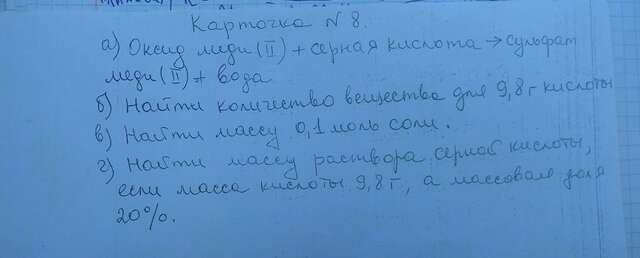 Карточка N 8.
а) Оксид меди (II) + серная кислота → сульфат
меди (II) + вода
б) Найти количество вещества для 9,8 г кислоты
в) Найти массу 0,1 моль соли.
г) Найти массу раствора серной кислоты,
если масса кислоты 9,8 г, а массовая доля
20%.